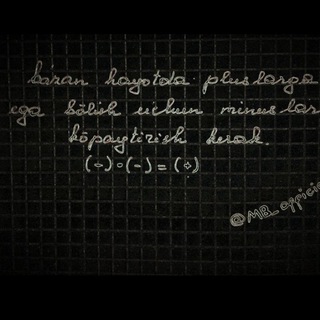 bazan hayotda pluslarga
ega bõlish uchun minuslar
kõpaytirish kerak.
(-)·(-)=(+)
@MB_officia